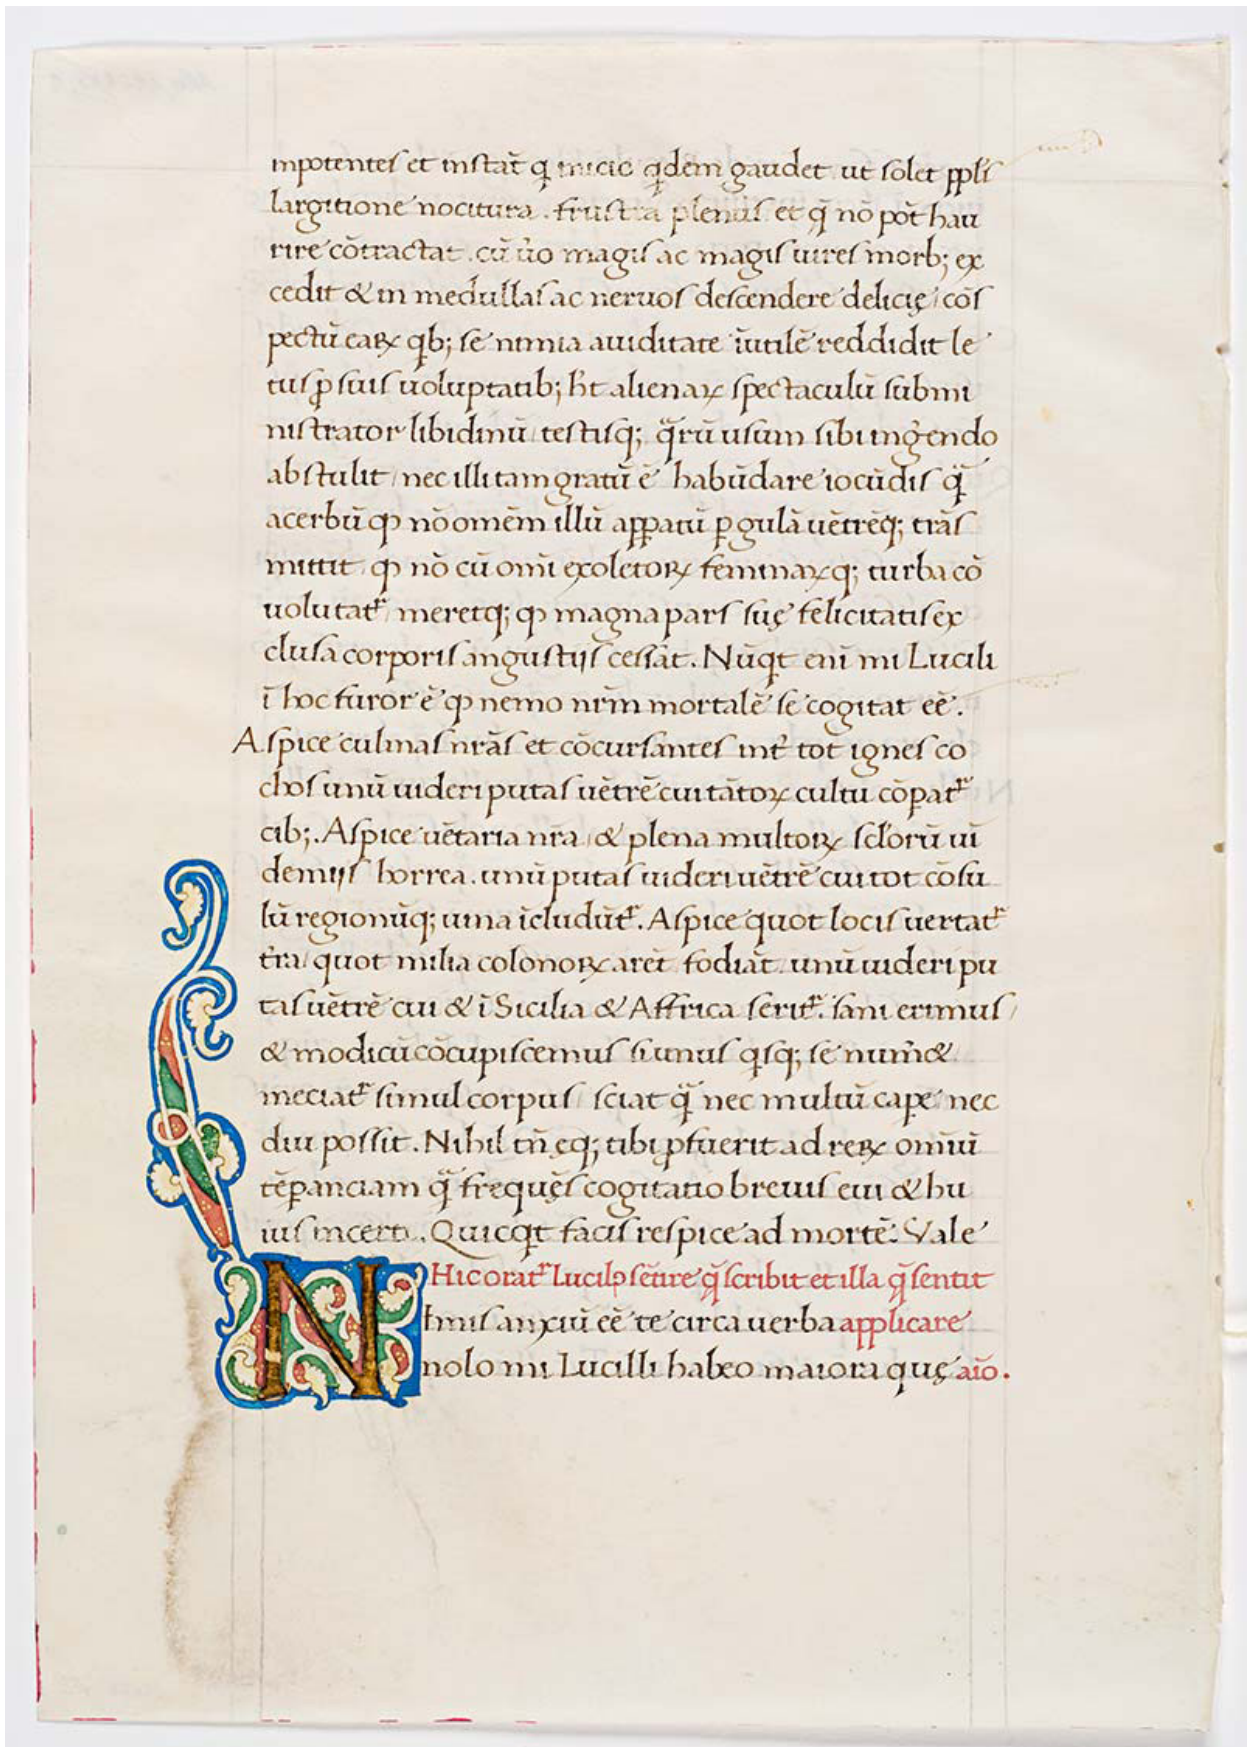 inpotentes et instāt q̨ inicio q̇dem gaudet ut solet ꝓpłi
largitione nocitura. frustra plenus et q̄ nō pōt hau
rire cōtractat. cū ůo magis ac magis uires morb; ex
cedit & in medullas ac neruos descendere delicię / cōs
pectū eaꝝ qb; se nimia auiditate īutilē reddidit le
tus ꝓ suis uoluptatib; ħt alienaꝝ spectaculū submi
nistrator libidinū / testisq; q̄rū usum sibi inġendo
abstulit / nec illi tam gratū ē habūdare iocūdis q̄
acerbū ꝙ nō omēm illū apparū ꝑ gulā uētrēq; trās
mittit. ꝙ nō cū omī exoletoꝝ feminaꝝq; turba cō
uolutatᷣ meretq; ꝙ magna pars suę felicitatis ex
clusa corporis angustijs cessāt. Nūq̇t enī mi Lucili
ī hoc furor ē ꝙ nemo nr̄m mortalē se cogitat eē.
Aspice culinas nrās et cōcursantes int̄ tot ignes co
chos unū uideri putas uētrē cui tātoꝝ cultū cōpatᷣ
cib;. Aspice uētaria nr̄a / & plena multoꝝ sclorū ui
demijs horrea. unū putas uideri uētrē cui tot cōsu
lū regionūq; uina īcludūtᷣ. Aspice quot locis uertatᷣ
t̄ra / quot milia colonoꝝ arēt fodiāt. unū uideri pu
tas uētrē cui & ī Sicilia & Affrica seritᷣ. sani erimus /
& modicū cōcupiscemus si unus q̇sq; se num̄&
meciatᷣ simul corpus / sciat q̄ nec multū caꝑe nec
diu possit. Nihil tn̄ eq; tibi ꝓfuerit ad reꝝ omiū
tēꝑanciam q̄ frequę̄s cogitatio breuis eui & hu
ius incerti. Quicq̇t facis respice ad mortē. Vale
Hic oratᷣ Lucilꝓ sētire q̄ scribit et illa q̄ sentit
Nimis anxiū eē te circa uerba applicare
nolo mi Lucilli habeo maiora quę aīo.